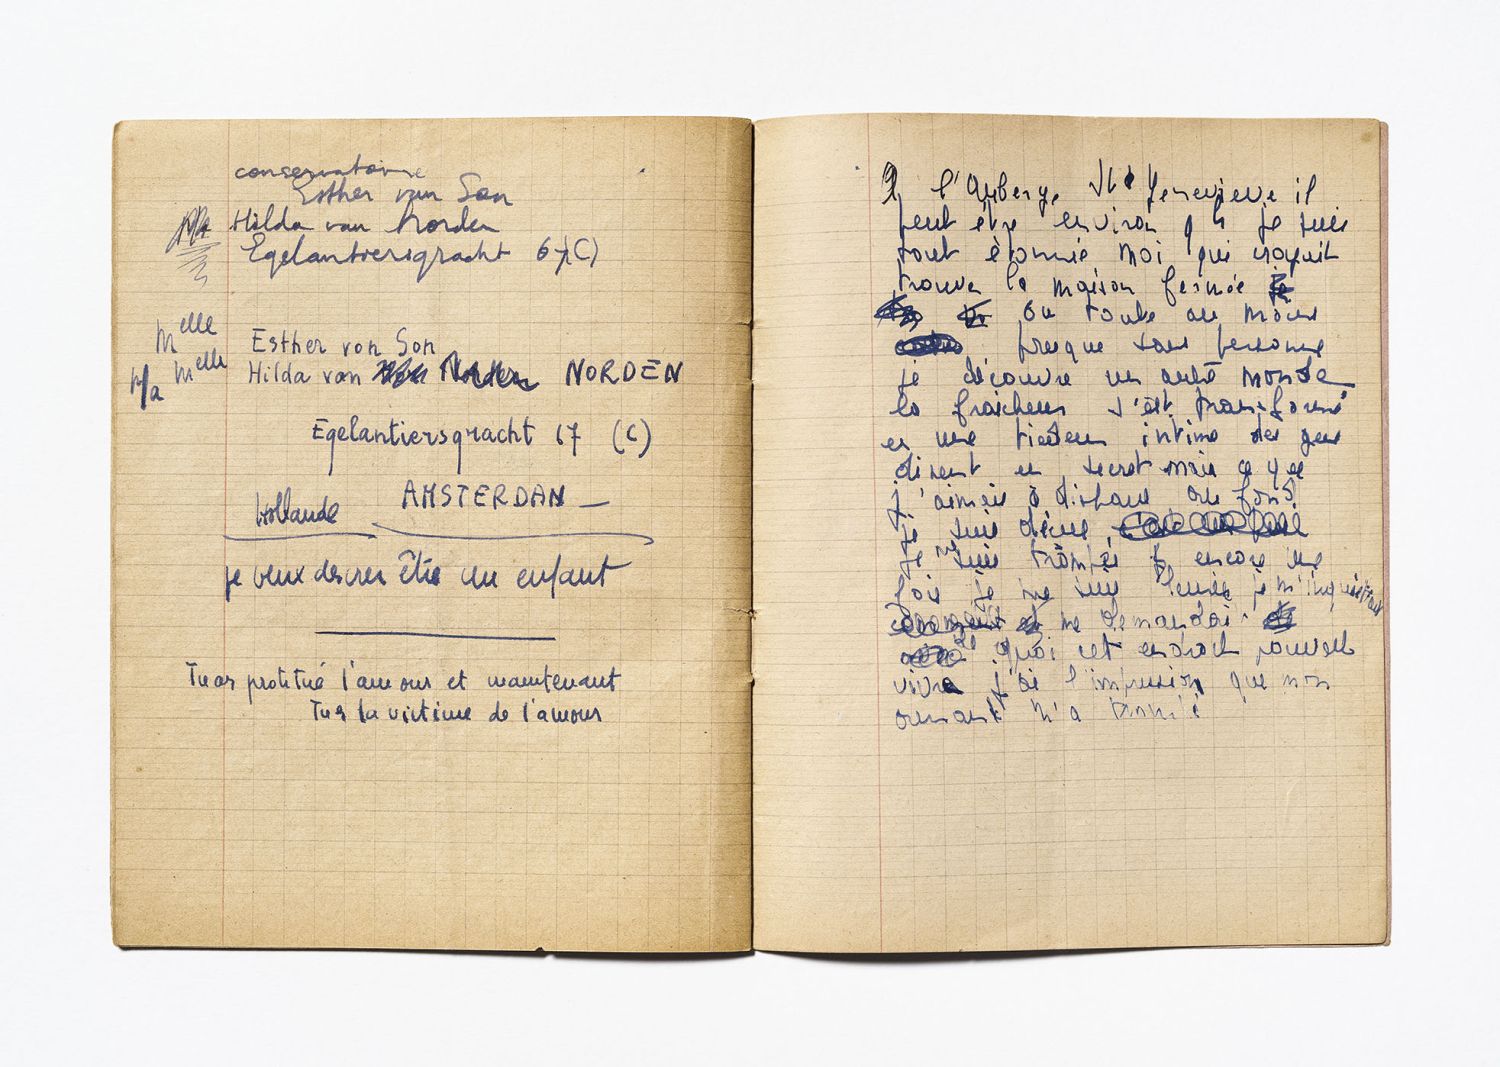 conservatoire
Esther van Son
Hilda van Norden
Egelantiersgracht 67(C)
Melle
Esther von Son
Melle
Hilda van NORDEN
Egelantiersgracht 67 (C)
Hollande
AMSTERDAM
je veux être un enfant
Tu as protitué l'amour et maintenant
Tu es la victime de l'amour
l'Auberge St Genevieve il
peut être environ 9 h je suis
tout étonnée moi qui croyait
trouver la maison fermée
ou toute au moins
presque sans personne
je découvre un autre monde
la fraicheur s'est transformé
en une tiedeur intime des gens
disent en secret mais ce que
j'aimais à distance au fond
je suis déçue
je me suis trompée encore une
fois je me suis je m'inquiétais
me demandais
de quoi cet endroit pouvait
vivre j'ai l'impression que mon
amant m'a